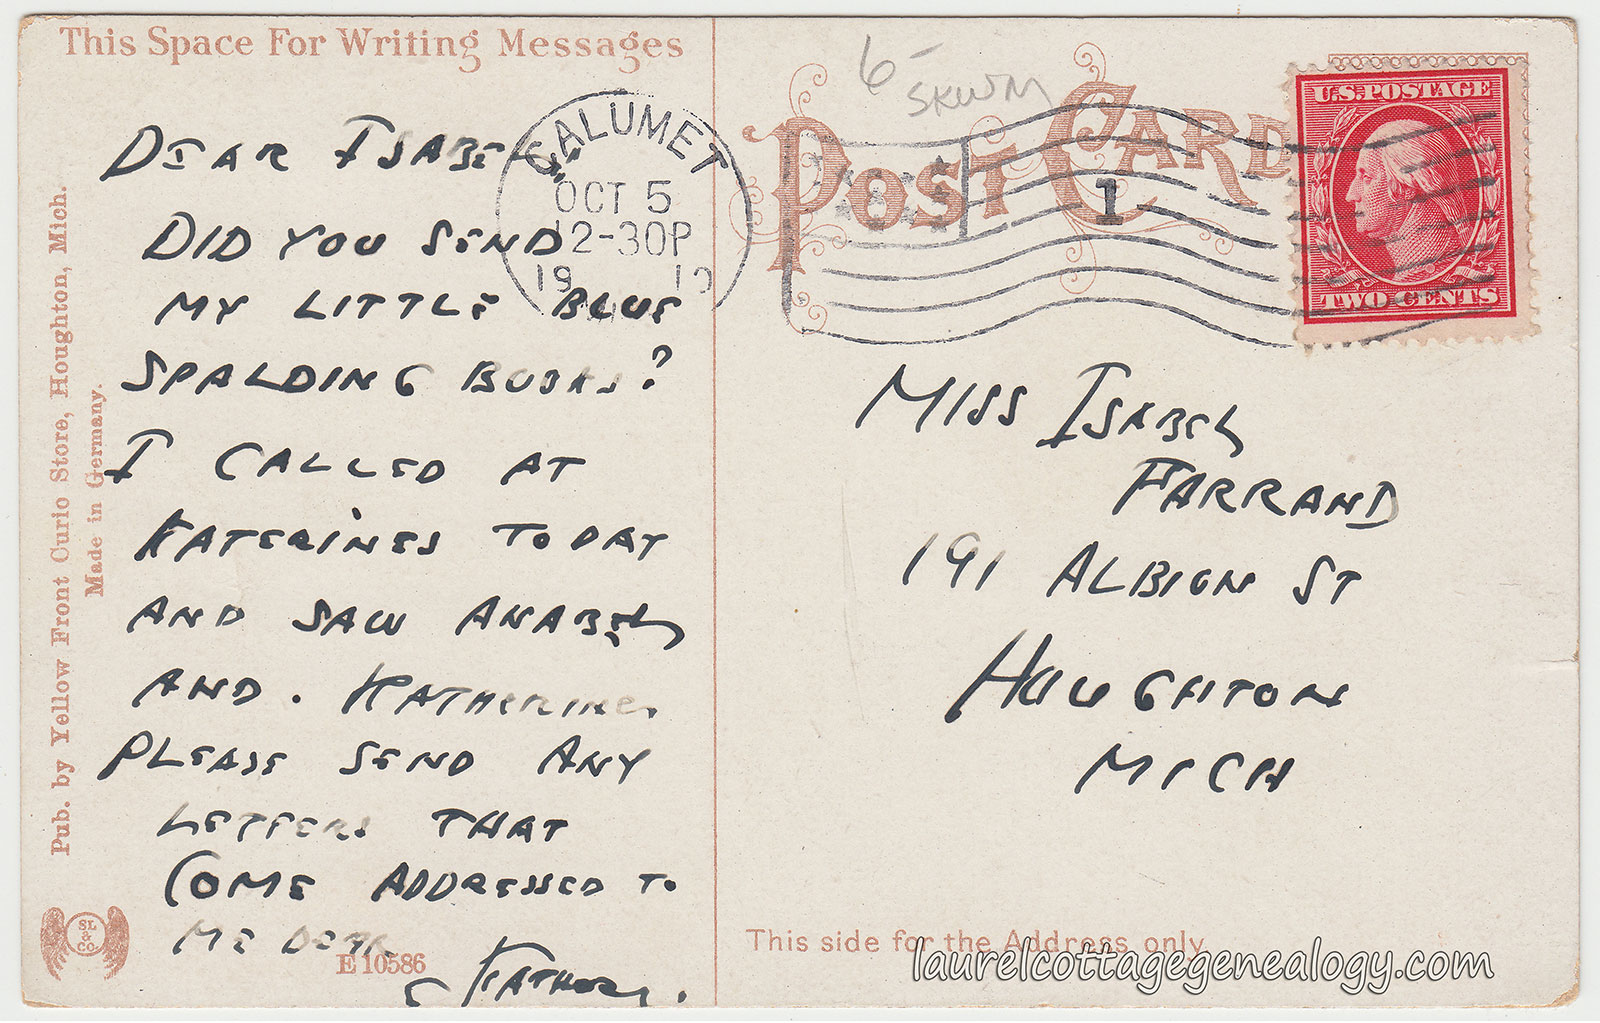 This Space For Writing Messages
DEAR ISABEL
DID YOU SEND
MY LITTLE BLUE
SPALDING BOOKS?
I CALLED AT
KATERINES TODAY
AND SAW ANABEL
AND. KATHERINE.
PLEASE SEND ANY
LETTERS THAT
COME ADDRESSED TO
ME DEAR
FATHER.
Pub. by Yellow Front Curio Store, Houghton, Mich.
Made in Germany.
SL & Co.
E 10586
CALUMET
OCT 5
12-30P
1910
6-
POST CARD
1
U.S. POSTAGE
TWO CENTS
MISS ISABEL
FARRAND
191 ALBION ST
HOUGHTON
MICH
This side for the Address only
laurelcottagegenealogy.com